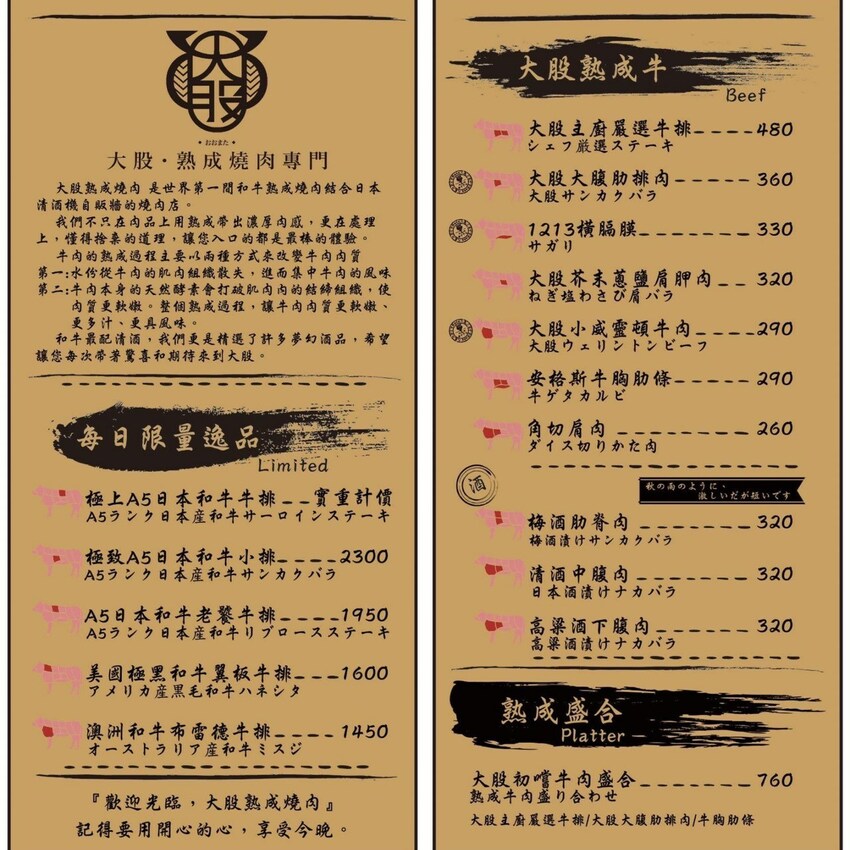 大股
おおまた
大股・熟成燒肉專門
大股熟成燒肉 是世界第一間和牛熟成燒肉結合日本
清酒機自販牆的燒肉店。
我們不只在肉品上用熟成帶出濃厚肉感，更在處理
上，懂得捨棄的道理，讓您入口的都是最棒的體驗。
牛肉的熟成過程主要以兩種方式來改變牛肉肉質
第一:水份從牛肉的肌肉組織散失，進而集中牛肉的風味
第二:牛肉本身的天然酵素會打破肌肉內的結締組織，使
肉質更軟嫩。整個熟成過程，讓牛肉肉質更軟嫩、
更多汁、更具風味。
和牛最配清酒，我們更是精選了許多夢幻酒品，希望
讓您每次帶著驚喜和期待來到大股。
每日限量逸品
Limited
極上A5日本和牛牛排__實重計價
A5ランク日本産和牛サーロインステーキ
極致A5日本和牛小排____2300
A5ランク日本産和牛サンカクバラ
A5日本和牛老饕牛排____1950
A5ランク日本産和牛リブロースステーキ
美國極黑和牛翼板牛排___1600
アメリカ産黒毛和牛ハネシタ
澳洲和牛布雷德牛排____1450
オーストラリア産和牛ミスジ
『歡迎光臨，大股熟成燒肉』
記得要用開心的心，享受今晚。
大股熟成牛
Beef
大股主廚嚴選牛排____480
シェフ厳選ステーキ
大股大腹肋排肉_____360
大股サンカクバラ
1213橫膈膜______330
サガリ
大股芥末蔥鹽肩胛肉__320
ねぎ塩わさび肩バラ
大股小威靈頓牛肉___290
大股ウェリントンビーフ
安格斯牛胸肋條_____290
牛ゲタカルビ
角切肩肉________260
ダイス切りかた肉
酒
秋の雨のように、
激しいだが短いです
梅酒肋脊肉_______320
梅酒漬けサンカクバラ
清酒中腹肉_______320
日本酒漬けナカバラ
高粱酒下腹肉______320
高粱酒漬けナカバラ
熟成盛合
Platter
大股初嚐牛肉盛合______760
熟成牛肉盛り合わせ
大股主廚嚴選牛排/大股大腹肋排肉/牛胸肋條